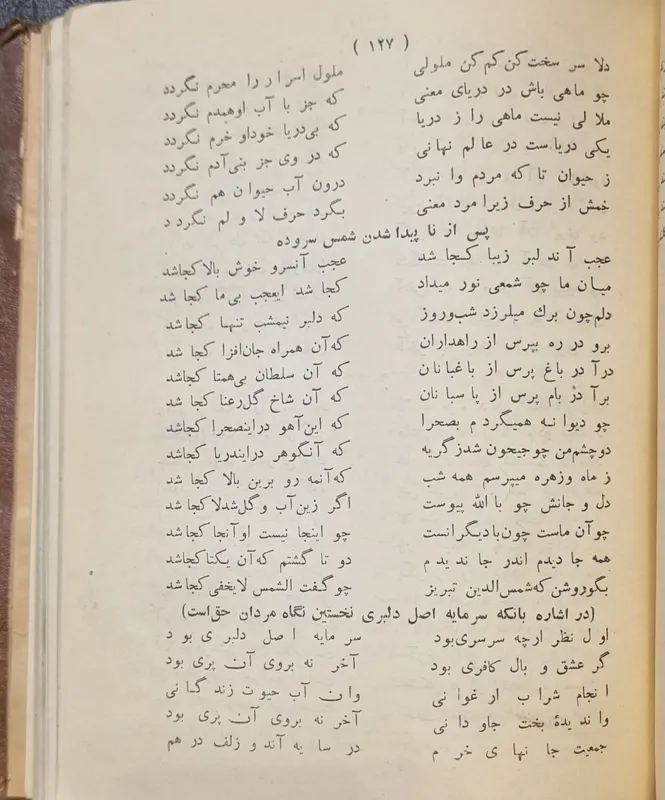 ( ۱۲۷ )
دلا سر سخت کن کم کن ملولی ملول اسرار را محرم نگردد
چو ماهی باش در دریای معنی که جز با آب او همدم نگردد
ملالی نیست ماهی را ز دریا که بی‌دریا خود او خرم نگردد
یکی دریاست در عالم نهانی که در وی جز بنی‌آدم نگردد
ز حیوان تا که مردم وا نبرد درون آب حیوان هم نگردد
خمش از حرف زیرا مرد معنی بگرد حرف لا و لم نگردد
پس از نا پیدا شدن شمس سروده
عجب آندلبر زیبا کجا شد عجب آنسرو خوش بالا کجاشد
میان ما چو شمعی نور میداد کجا شد ایعجب بی‌ما کجا شد
دلم چون برك میلرزد شب‌وروز که دلبر نیمشب تنها کجاشد
برو در ره بپرس از راهداران که آن همراه جان‌افزا کجا شد
درآ در باغ پرس از باغبانان که آن سلطان بی‌همتا کجاشد
برآ در بام پرس از پاسبانان که آن شاخ گل‌رعنا کجا شد
چو دیوانه همیگردم بصحرا که این آهو در اینصحرا کجاشد
دو چشم من چو جیحون شد ز گریه که آنگوهر در ایندریا کجاشد
ز ماه وزهره میپرسم همه شب که آنمه رو برین بالا کجا شد
دل و جانش چو با الله پیوست اگر زین آب و گل‌شد لا کجاشد
چو آن ماست چون با دیگرانست چو اینجا نیست او آنجا کجاشد
همه جا دیدم اندر جا ندیدم دو تا گشتم که آن یکتا کجاشد
بگو روشن که شمس‌الدین تبریز چو گفت الشمس لایخفی کجاشد
(در اشاره بانکه سرمایه اصل دلبری نخستین نگاه مردان حق‌است)
اول نظر ارچه سرسری‌بود سرمایه اصل دلبری بود
گر عشق و بال کافری بود آخر نه بروی آن پری بود
انجام شراب ارغوانی وان آب حیوت زندگانی
واندیدهٔ بخت جاودانی آخر نه بروی آن پری بود
جمعیت جانهای خرم در سایه آندو زلف درهم